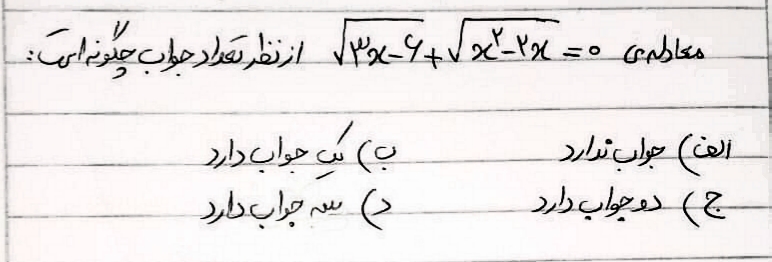 معادله‌ی √۳x-۶ + √x²-۲x = ۰ از نظر تعداد جواب چگونه است:
الف) جواب ندارد ب) یک جواب دارد
ج) دو جواب دارد د) سه جواب دارد